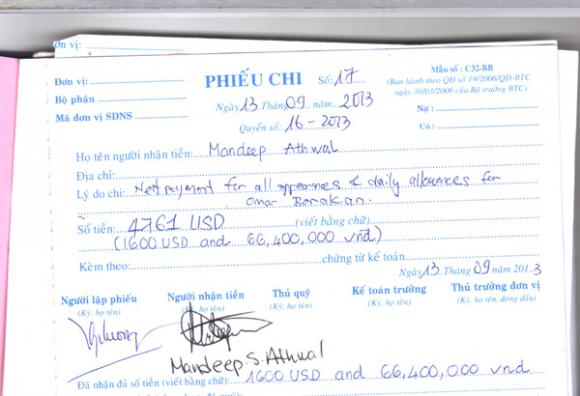 ơn vị:
Đơn vị:
Bộ phận
Mã đơn vị SDNS
PHIẾU CHI Số: 17
Ngày 13 Tháng 09 năm 2013
Quyển số: 16-2013
Mẫu số : C32-BB
(Ban hành theo QĐ số 19/2006/QĐ-BTC
ngày 30/03/2006 của Bộ trưởng BTC)
Nợ :
Có :
Họ tên người nhận tiền: Mandeep Athwal
Địa chỉ:
Lý do chi: Net payment for all appearances & daily allowances for
Omar Borakan.
Số tiền: 4761 USD (viết bằng chữ)
(1600 USD and 66,400,000 vnd)
Kèm theo: chứng từ kế toán
Ngày 13 Tháng 09 năm 2013
Người lập phiếu Người nhận tiền Thủ quỹ Kế toán trưởng Thủ trưởng đơn vị
(Ký, họ tên) (Ký, họ tên) (Ký, họ tên) (Ký, họ tên) (Ký, họ tên, đóng dấu)
Mandeep.S.Athwal
Đã nhận đủ số tiền (viết bằng chữ): 1600 USD and 66,400,000 vnd